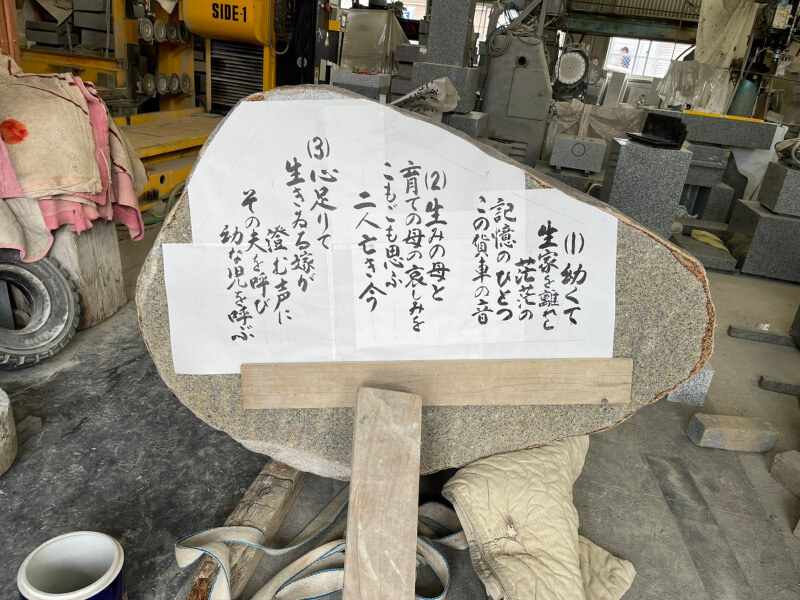 SIDE-1
(1)幼くて
生家を離れし
茫茫の
記憶のひとつ
この貨車の音
(2)生みの母と
育ての母の哀しみを
こもごも思ふ
二人亡き今
(3)心足りて
生きゐる嫁が
澄む声に
その夫を呼び
幼な児を呼ぶ